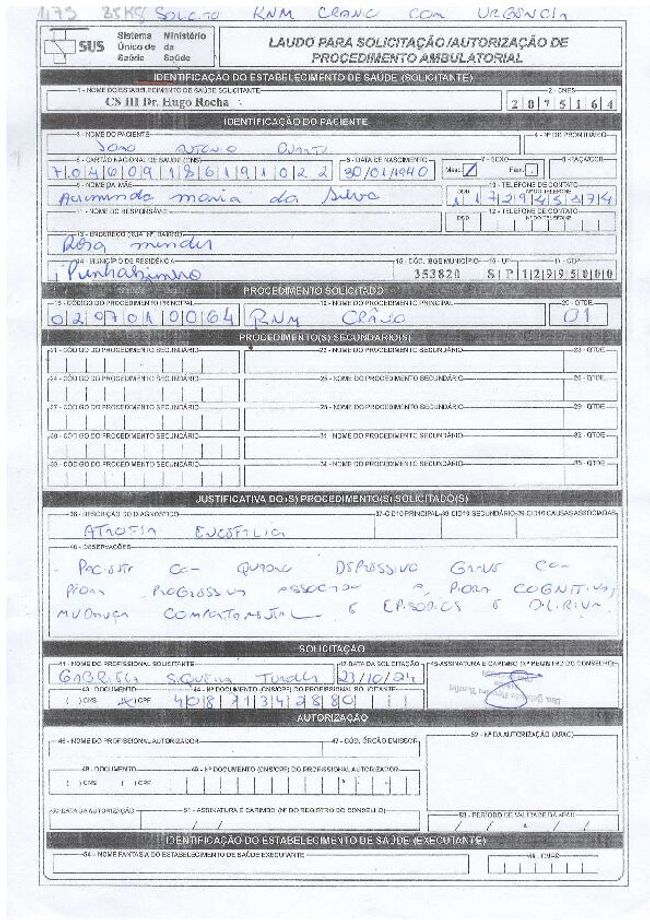 1,73 85KG SOLICITO RNM CRANIO COM URGÊNCIA
SUS
Sistema Único de Saúde
Ministério da Saúde
LAUDO PARA SOLICITAÇÃO/AUTORIZAÇÃO DE PROCEDIMENTO AMBULATORIAL
IDENTIFICAÇÃO DO ESTABELECIMENTO DE SAÚDE (SOLICITANTE)
1 - NOME DO ESTABELECIMENTO DE SAÚDE SOLICITANTE
CS III Dr. Hugo Rocha
2 - CNES
2075164
IDENTIFICAÇÃO DO PACIENTE
3 - NOME DO PACIENTE
4 - Nº DO PRONTUÁRIO
João Antonio Duarte
5 - CARTÃO NACIONAL DE SAÚDE (CNS)
6 - DATA DE NASCIMENTO
7 - SEXO
8 - RAÇA/COR
30/01/1940
Masc.
Fem.
9 - NOME DA MÃE
10 - TELEFONE DE CONTATO
DDD
Nº DO TELEFONE
maria da Silva
11 - NOME DO RESPONSÁVEL
12 - TELEFONE DE CONTATO
DDD
Nº DO TELEFONE
13 - ENDEREÇO (RUA, Nº, BAIRRO)
Rosa mendes
14 - MUNICÍPIO DE RESIDÊNCIA
15 - CÓD. IBGE MUNICÍPIO
16 - UF
17 - CEP
Pinhalzinho
353820
SP
12995000
PROCEDIMENTO SOLICITADO
18 - CÓDIGO DO PROCEDIMENTO PRINCIPAL
19 - NOME DO PROCEDIMENTO PRINCIPAL
20 - QTDE
0207010064
RNM CRÂNIO
01
PROCEDIMENTO(S) SECUNDÁRIO(S)
21 - CÓDIGO DO PROCEDIMENTO SECUNDÁRIO
22 - NOME DO PROCEDIMENTO SECUNDÁRIO
23 - QTDE
24 - CÓDIGO DO PROCEDIMENTO SECUNDÁRIO
25 - NOME DO PROCEDIMENTO SECUNDÁRIO
26 - QTDE
27 - CÓDIGO DO PROCEDIMENTO SECUNDÁRIO
28 - NOME DO PROCEDIMENTO SECUNDÁRIO
29 - QTDE
30 - CÓDIGO DO PROCEDIMENTO SECUNDÁRIO
31 - NOME DO PROCEDIMENTO SECUNDÁRIO
32 - QTDE
33 - CÓDIGO DO PROCEDIMENTO SECUNDÁRIO
34 - NOME DO PROCEDIMENTO SECUNDÁRIO
35 - QTDE
JUSTIFICATIVA DO(S) PROCEDIMENTO(S) SOLICITADO(S)
36 - DESCRIÇÃO DO DIAGNÓSTICO
37 - CID10 PRINCIPAL
38 - CID10 SECUNDÁRIO
39 - CID10 CAUSAS ASSOCIADAS
ATROFIA ENCEFÁLICA
40 - OBSERVAÇÕES
- PACIENTE COM QUADRO DEPRESSIVO GRAVE COM
PIORA PROGRESSIVA ASSOCIADA A PIORA COGNITIVA,
MUDANÇA COMPORTAMENTAL E EPISÓDIOS DE DELIRIUM.
SOLICITAÇÃO
41 - NOME DO PROFISSIONAL SOLICITANTE
42 - DATA DA SOLICITAÇÃO
45 - ASSINATURA E CARIMBO (Nº REGISTRO DO CONSELHO)
GABRIELA
23/10/24
43 - DOCUMENTO
44 - Nº DOCUMENTO (CNS/CPF) DO PROFISSIONAL SOLICITANTE
( ) CNS
(x) CPF
AUTORIZAÇÃO
46 - NOME DO PROFISSIONAL AUTORIZADOR
47 - CÓD. ÓRGÃO EMISSOR
52 - Nº DA AUTORIZAÇÃO (APAC)
48 - DOCUMENTO
49 - Nº DOCUMENTO (CNS/CPF) DO PROFISSIONAL AUTORIZADOR
( ) CNS
( ) CPF
50 - DATA DA AUTORIZAÇÃO
51 - ASSINATURA E CARIMBO (Nº DO REGISTRO DO CONSELHO)
53 - PERÍODO DE VALIDADE DA APAC
IDENTIFICAÇÃO DO ESTABELECIMENTO DE SAÚDE (EXECUTANTE)
54 - NOME FANTASIA DO ESTABELECIMENTO DE SAÚDE EXECUTANTE
55 - CNES